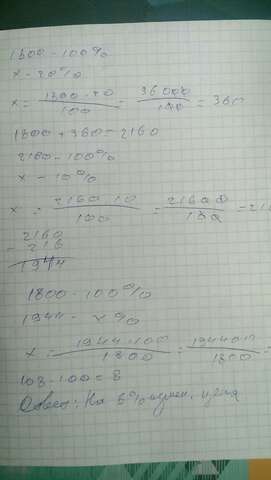 1800 - 100%
x - 20%
x = 1800 · 20 / 100 = 36000 / 100 = 360
1800 + 360 = 2160
2160 - 100%
x - 10%
x = 2160 · 10 / 100 = 21600 / 100 = 21
2160
- 216
1944
1800 - 100%
1944 - x%
x = 1944 · 100 / 1800 = 194400 / 1800 =
108 - 100 = 8
Ответ: На 8% измен. цена